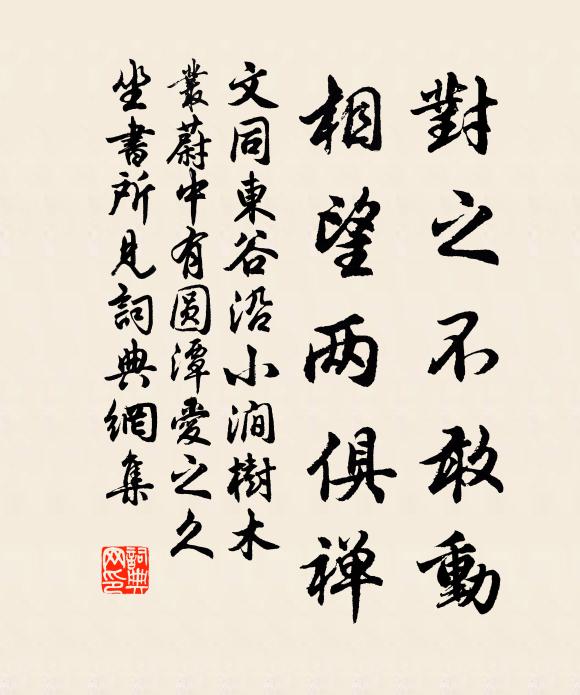 對之不敢動
相望两俱禅
文同東谷沿小澗樹木
叢蔚中有圆潭愛之久
坐書所見詞典網集
詞典
网印